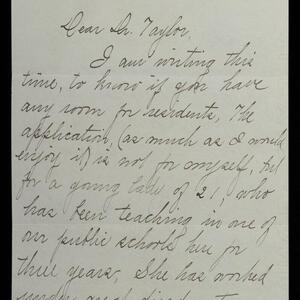 Dear Dr. Taylor,
I am writing this
time, to know if you have
any room for residents, The
application, (as much as I would
enjoy it) is not for myself, but
for a young lady of 21, who
has been teaching in one of
our public schools here for
three years, She has worked
under great